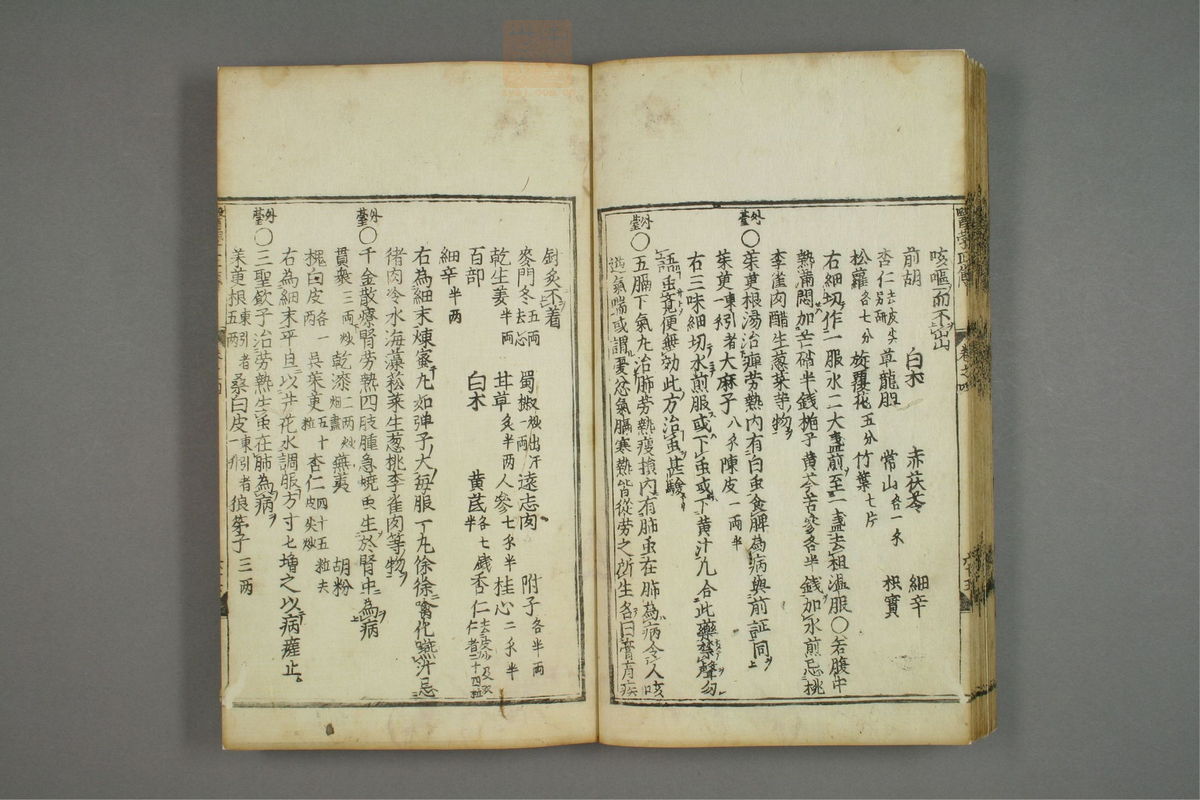 咳嘔而不出
前胡 白朮 赤茯苓 細辛
杏仁去皮尖另研 草龍胆 常山各一兩 枳實
松蘿各七分 旋覆花五分 竹葉七片
右細切作一服水二大盞煎至一盞去柤溫服〇若腹中
熱滿悶加芒硝半錢梔子黃芩苦參各半錢加水煎忌桃
李雀肉醋生葱菜等物
外臺〇茱萸根湯治脾勞熱內有白虫食脾為病與前証同
茱萸東引者 大麻子八合 陳皮一兩半
右三味細切水煎服或下虫或下黃汁凡合此藥禁聲勿
語虫竟便無効此方治虫甚驗
外臺〇五膈下氣丸治肺勞熱瘦損內有肺虫在肺為病令人咳
逆氣喘或謂憂恚氣膈寒熱皆從勞之所生名曰膏肓疾
針炙不着
麥門冬五兩去心 蜀椒一兩炒出汗 遠志肉 附子各半兩
乾生姜半兩 甘草炙半兩 人參七分半 桂心二分半
百部 白朮 黃芪各七錢半 杏仁二十四粒
細辛半兩
右為細末煉蜜丸如弾子大每服一丸徐徐噙化嚥汁忌
猪肉冷水海藻菘菜生葱桃李雀肉等物
外臺〇千金散療腎勞熱四肢腫急蟯虫生於腎中為病
貫衆三兩炒 乾漆二兩炒烟盡 蕪荑 胡粉
槐白皮各一兩 吳茱萸五十粒 杏仁四十五粒去皮尖炒
右為細末平旦以井花水調服方寸匕增之以病瘥止
外臺〇三聖飲子治勞熱生虫在肺為病
茱萸根東引者五兩 桑白皮東引者一升 狼牙子三兩